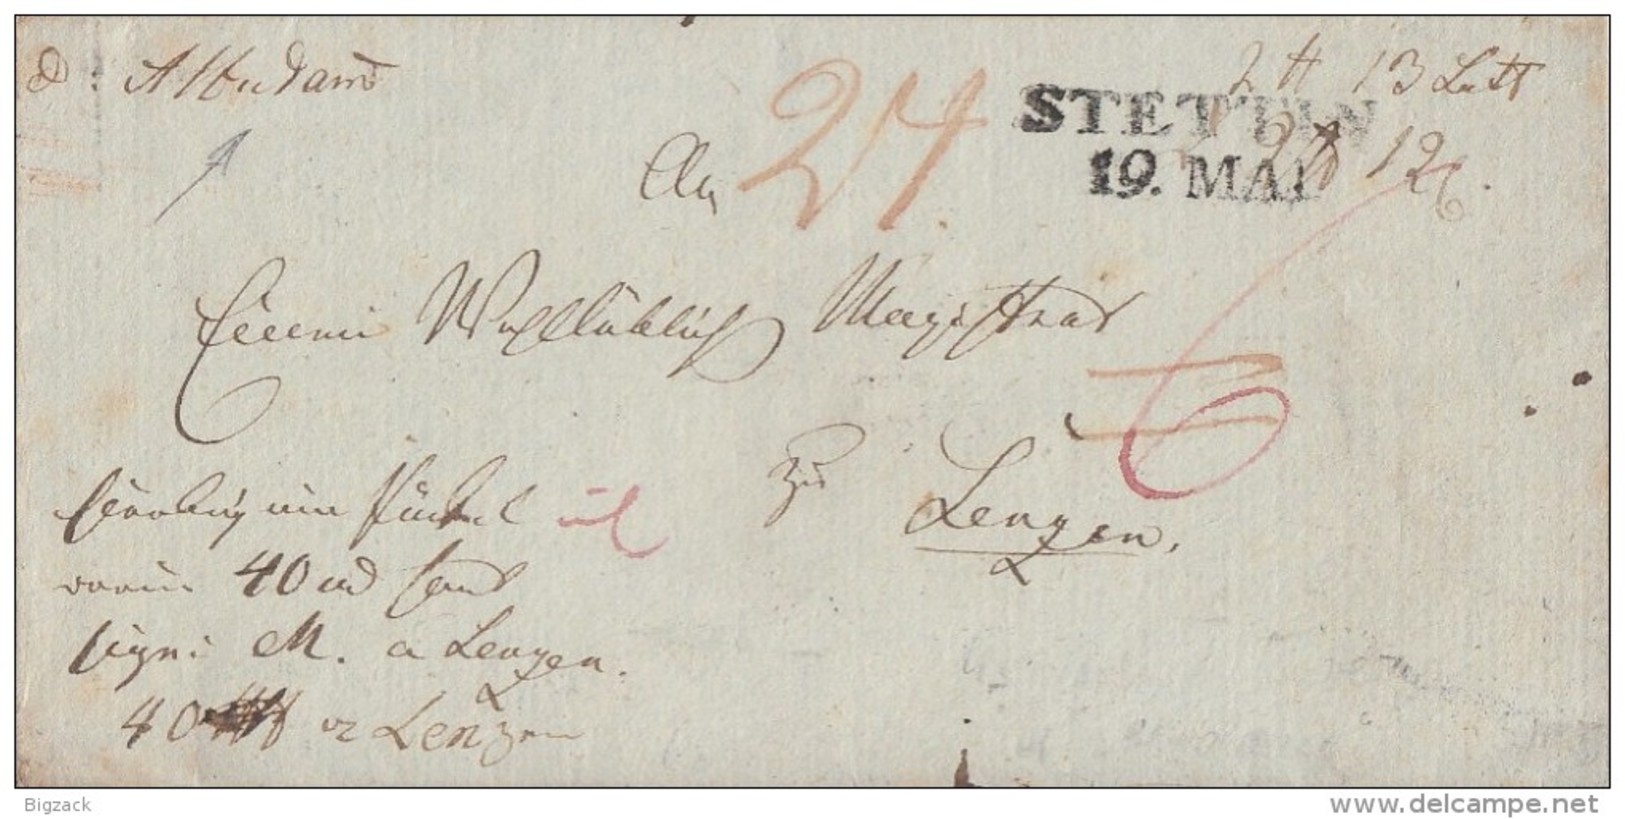 d: Altendamm
2 ℔ 13 Loth
STETTIN
19. MAI
2 ℔ 12
An
24.
Einem Wohllöblichen Magistrat
6
zu
Lenzen.
hierbey ein Päckel
worin 40 rd Cour
signi M. a Lenzen.
40 Lenzen
Bigzack
www.delcampe.net